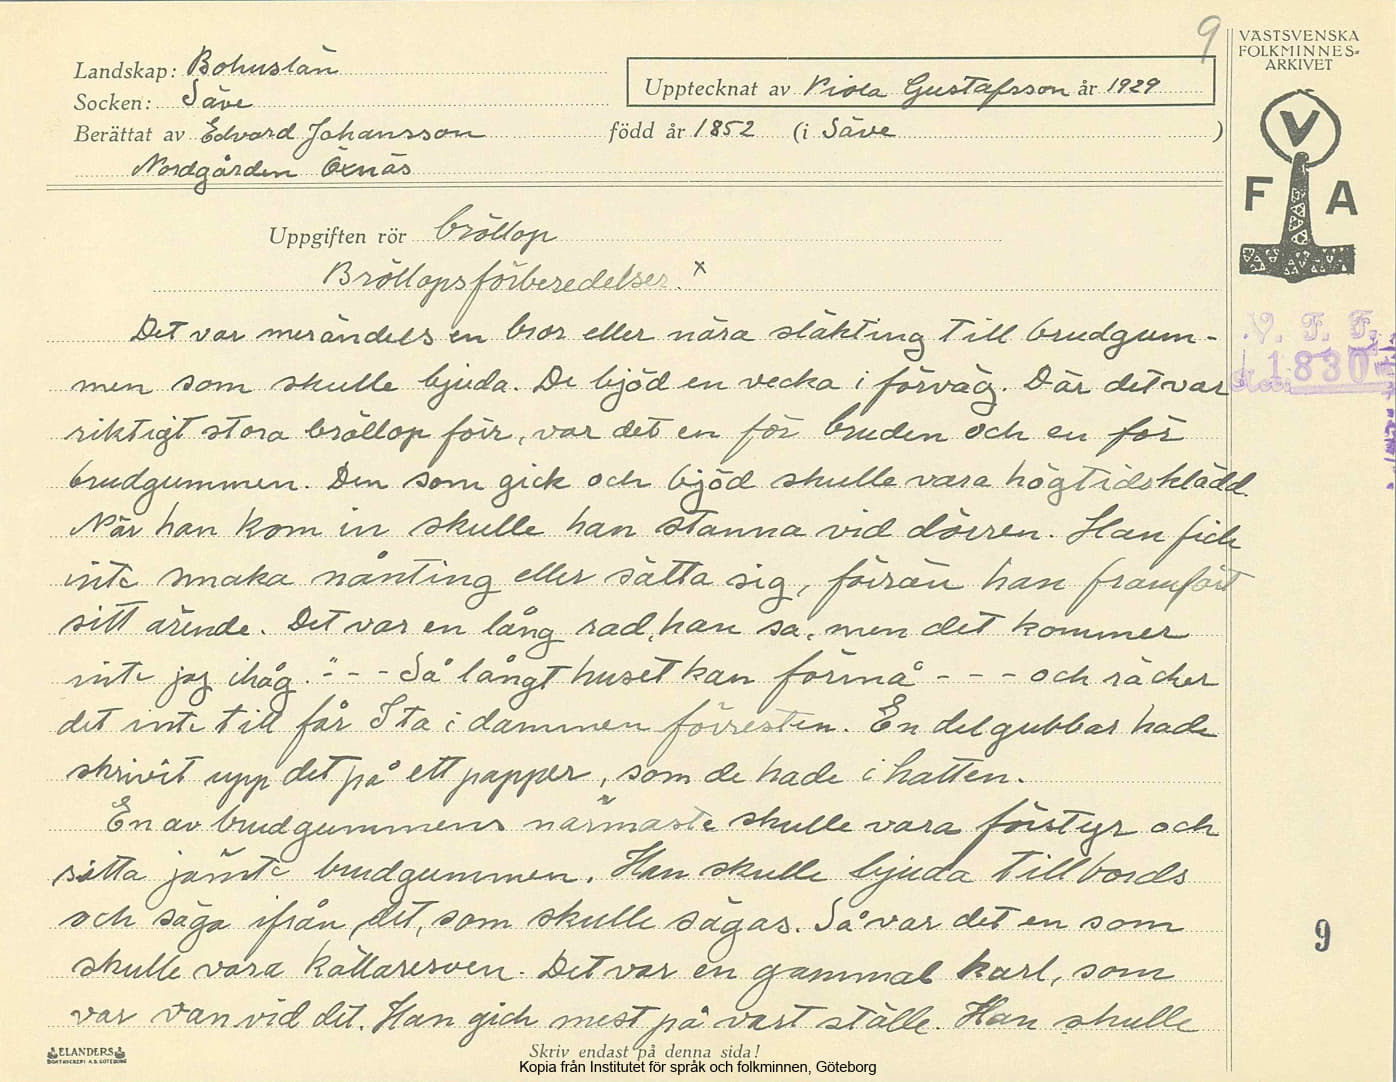 9
VÄSTSVENSKA
FOLKMINNES-
ARKIVET
Landskap: Bohuslän
Socken: Säve
Upptecknat av Viola Gustafsson år 1929
Berättat av Edvard Johansson född år 1852 (i Säve )
Nordgården Öxnäs
V
F A
Uppgiften rör bröllop
Bröllopsförberedelser. x
Det var merändels en bror eller nära släkting till brudgum-
men som skulle bjuda. De bjöd en vecka i förväg. Där det var
riktigt stora bröllop förr, var det en för bruden och en för
brudgummen. Den som gick och bjöd skulle vara högtidsklädd.
När han kom in skulle han stanna vid dörren. Han fick
inte smaka nånting eller sätta sig, förrän han framfört
sitt ärende. Det var en lång rad, han sa, men det kommer
inte jag ihåg. "- - - Så långt huset kan förmå - - - och räcker
det inte till får I ta i dammen förresten. En del gubbar hade
skrivit upp det på ett papper, som de hade i hatten.
En av brudgummens närmaste skulle vara förstyr och
sitta jämte brudgummen. Han skulle bjuda till bords
och säga ifrån det, som skulle sägas. Så var det en som
skulle vara källaresven. Det var en gammal karl, som
var van vid det. Han gick mest på vart ställe. Han skulle
V. F. F.
1830
9
ELANDERS
BOKTRYCKERI A.B. GÖTEBORG
Skriv endast på denna sida!
Kopia från Institutet för språk och folkminnen, Göteborg